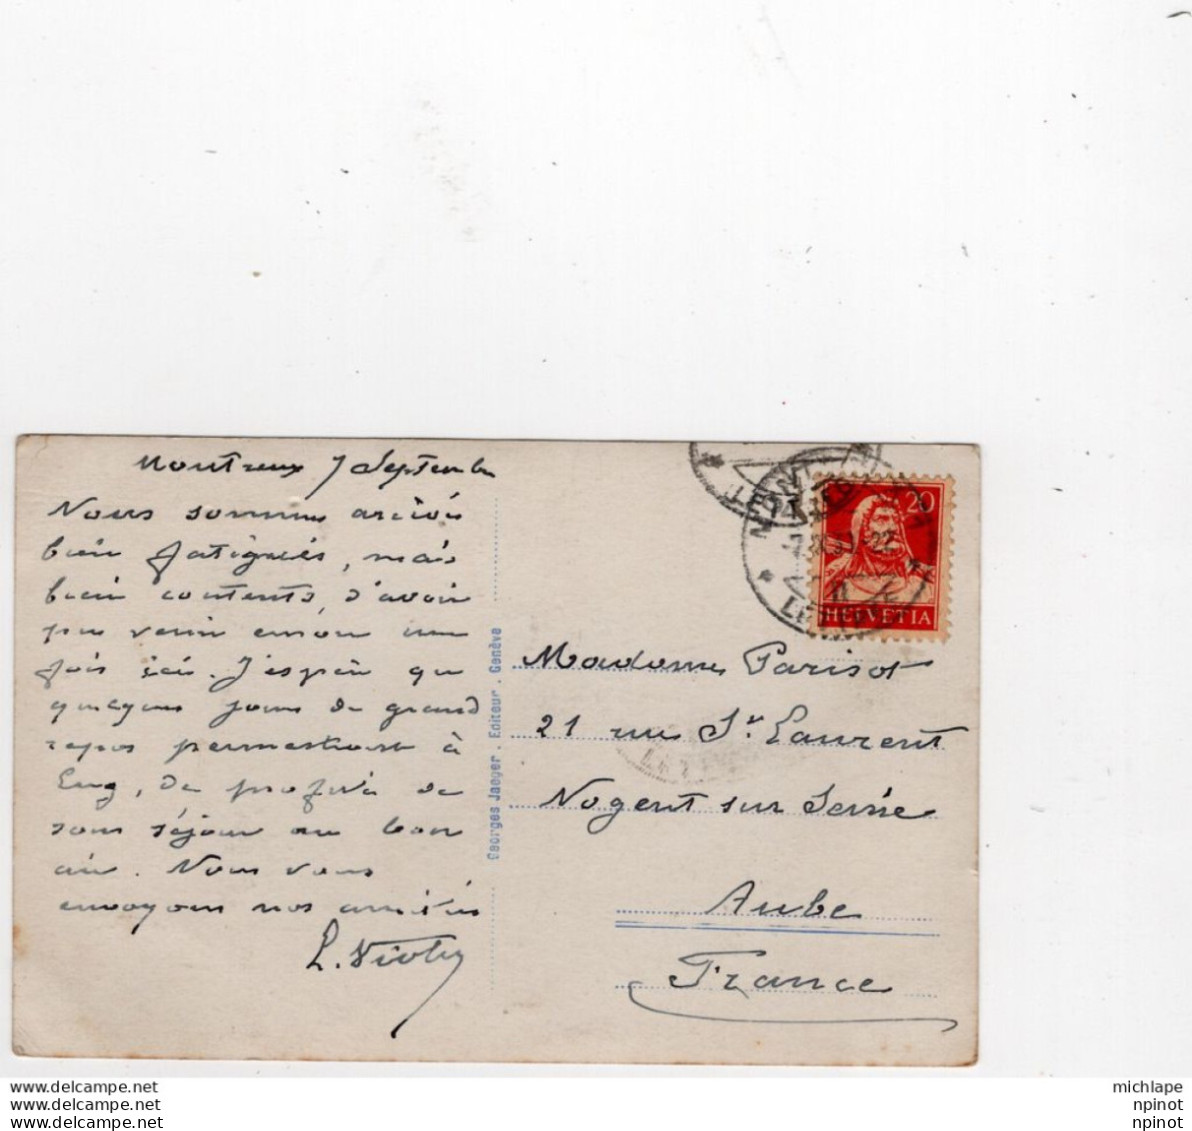 Montreux 7 Septembre
Nous sommes arrivés
bien fatigués, mais
bien contents, d'avoir
pu venir encore une
fois ici. J'espère que
quelques jours de grand
repos permettront à
de profiter de
son séjour au bon
air. Nous vous
envoyons nos amitiés
Georges Jaeger. Editeur. Genève
20
HELVETIA
Madame Parisot
21 rue St Laurent
Nogent sur Seine
Aube
France
www.delcampe.net
www.delcampe.net
www.delcampe.net
michlape
npinot
npinot